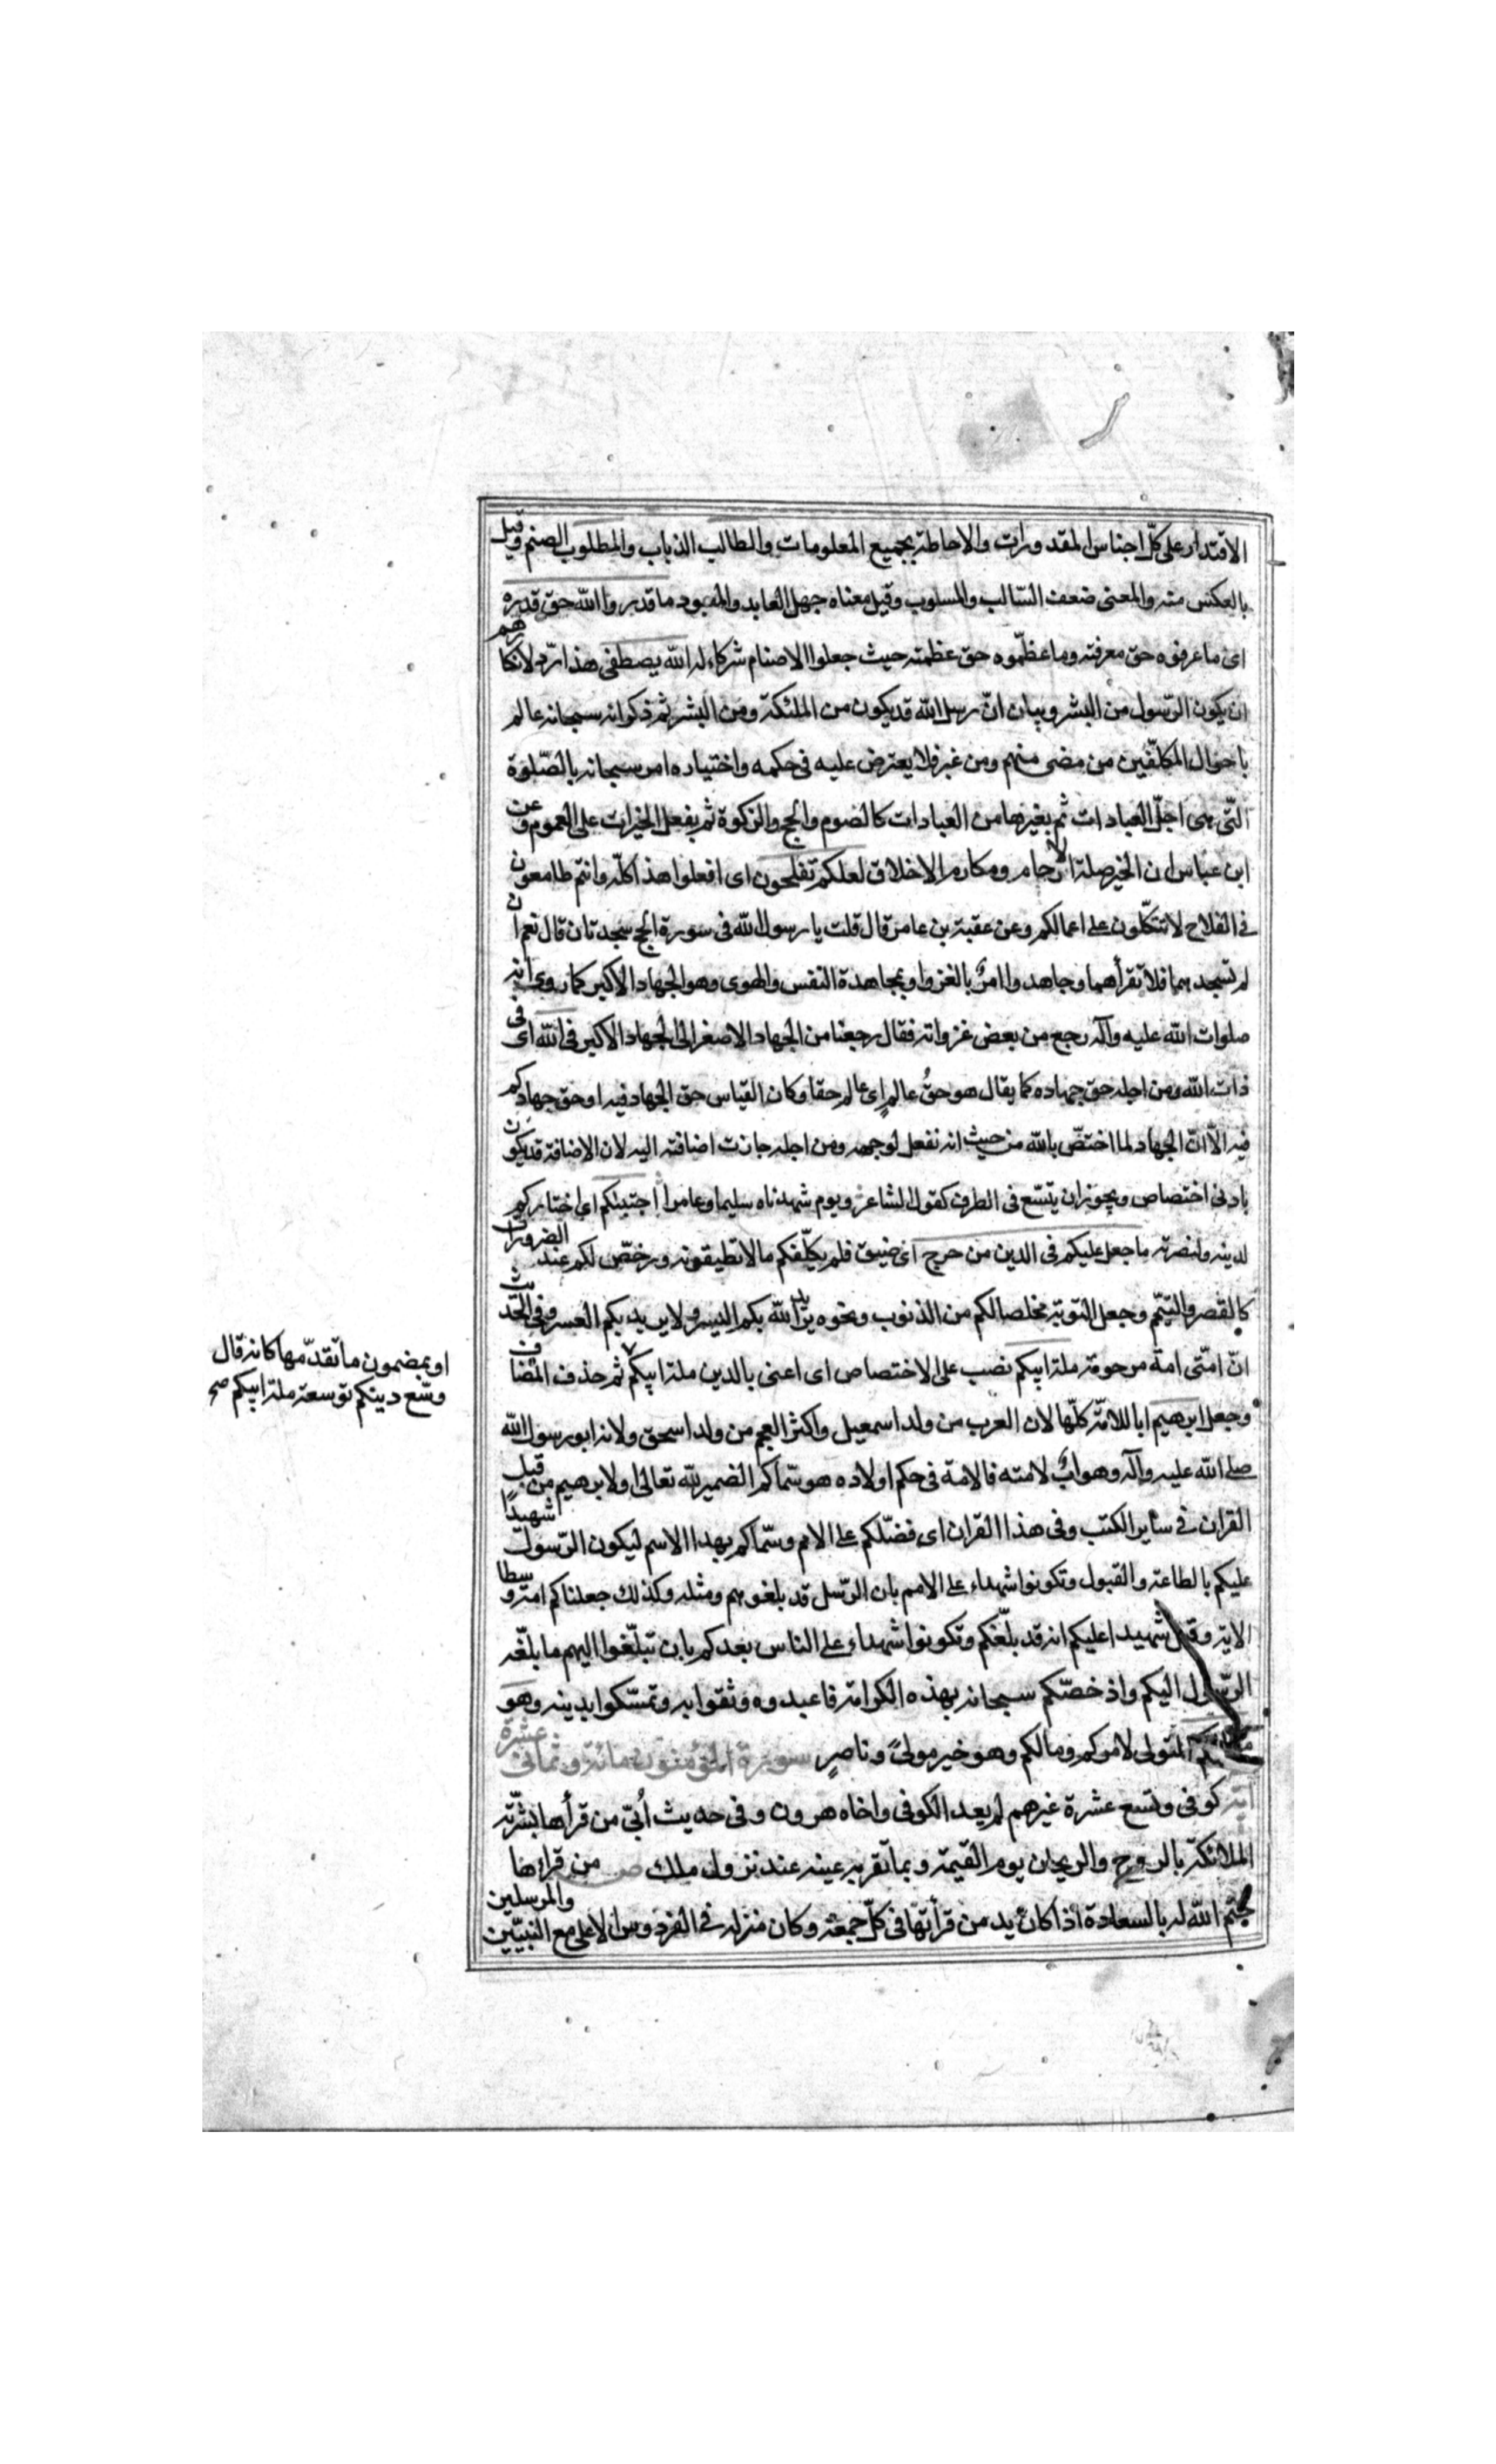 الاقتدار على كلّ اجناس المقدورات والاحاطة بجميع المعلومات والطالب الذباب والمطلوب الصنم وقيل
بالعكس منه والمعنى ضعف السّالب والمسلوب وقيل معناه جهل العابد والمعبود ما قدروا الله حق قدره
اى ما عرفوه حق معرفته وما عظّموه حق عظمته حيث جعلوا الاصنام شركاء له الله يصطفى هذا ردّ لانكارهم
ان يكون الرّسول من البشر وبيان انّ رسل الله قد يكون من الملئكة ومن البشر ثم ذكر انه سبحانه عالم
باحوال المكلّفين من مضى منهم ومن غبر فلا يعترض عليه فى حكمه واختياره امر سبحانه بالصّلوة
الّتى هى اجلّ العبادات ثم بغيرها من العبادات كالصوم والحج والزكوة ثم بفعل الخيرات على العموم وعن
ابن عباس ان الخير صلة الارحام ومكارم الاخلاق لعلكم تفلحون اى افعلوا هذا كلّه وانتم طامعون
فى الفلاح لا تتكّلون على اعمالكم وعن عقبة بن عامر قال قلت يا رسول الله فى سورة الحج سجدتان قال نعم ان
لم تسجد بهما فلا تقرأهما وجاهدوا امرٌ بالغزو او بمجاهدة النفس والهوى وهو الجهاد الاكبر كما روى انه
صلوات الله عليه وآله رجع من بعض غزواته فقال رجعنا من الجهاد الاصغر الى الجهاد الاكبر فى الله اى فى
ذات الله ومن اجله حق جهاده كما يقال هو حقُّ عالمٍ اى عالم حقا وكان القياس حق الجهاد فيه او حق جهادكم
فيه الّا انّ الجهاد لما اختصّ بالله من حيث انه نفعل لوجهه ومن اجله جازت اضافته اليه لان الاضافة قد يكون
بادنى اختصاص ويجوز ان يتسّع فى الظرف كقول الشاعر ويوم شهدناه سليما وعامرا اجتبيٰكم اى اختاركم
لدينه ولنصرته ما جعل عليكم فى الدين من حرج اى ضيق فلم يكلّفكم ما لا تطيقونه ورخصّ لكم عند الضرورات
كالقصر والتيمّم وجعل التوبة مخلصا لكم من الذنوب ونحوه يريد الله بكم اليسر ولا يريد بكم العسر وفى الحديث
انّ امّتى امة مرحومة ملة ابيكم نصب على الاختصاص اى اعنى بالدين ملة ابيكم ثم حذف المضاف
وجعل ابرهيم ابا للامّة كلّها لان العرب من ولد اسمعيل واكثر العجم من ولد اسحق ولانه ابو رسول الله
صلى الله عليه وآله وهو ابٌ لامته فالامة فى حكم اولاده هو سمّاكم الضمير لله تعالى او لابرهيم من قبل
القران فى سائر الكتب وفى هذا القران اى فضّلكم على الامم وسمّاكم بهذا الاسم ليكون الرّسول شهيدًا
عليكم بالطاعة والقبول وتكونوا شهداء على الامم بان الرّسل قد بلغوهم ومثله وكذلك جعلناكم امة وسطا
الاية وقيل شهيدا عليكم انه قد بلّغكم وتكونوا شهداء على الناس بعدكم بان تبلّغوا اليهم ما بلّغه
الرّسول اليكم واذ خصّكم سبحانه بهذه الكرامة فاعبدوه وثقوا به وتمسّكوا بدينه وهو
موليكم المتولى لاموركم ومالكم وهو خير مولىً وناصرٍ سورة المؤمنون مائة وثمانى عشرة
اية كوفى وتسع عشرة غيرهم لم يعد الكوفى واخاه هرون وفى حديث اُبىّ من قرأها بشّرته
الملائكة بالروح والريحان يوم القيمة وبما تقر به عينه عند نزول ملك من قراءها
ختم الله له بالسعادة اذا كان يدمن قرأتها فى كلّ جمعة وكان منزله فى الفردوس الاعلى مع النبيّين والمرسلين
او بمضمون ما تقدّمها كانه قال
وسّع دينكم توسعة ملة ابيكم صح